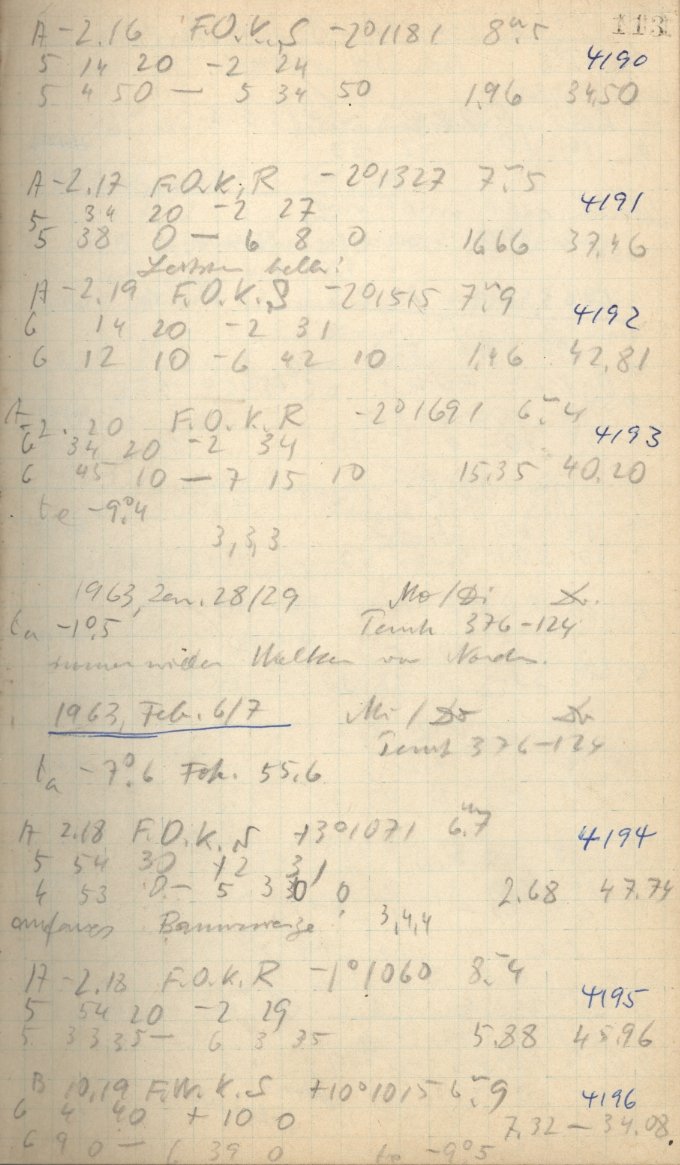 113
A -2.16 F.O.K.S -2°1181 8ᵐ.5
5 14 20 -2 24 4190
5 4 50 — 5 34 50 1,96 34,50
A -2.17 F.O.K.R -2°1327 7ᵐ.5
5 34 20 -2 27 4191
5 38 0 — 6 8 0 16,66 37,46
A -2.19 F.O.K.S -2°1515 7ᵐ.9
6 14 20 -2 31 4192
6 12 10 -6 42 10 1,46 42,81
A -2.20 F.O.K.R -2°1691 6ᵐ.4
6 34 20 -2 34 4193
6 45 10 — 7 15 10 15,35 40,20
te -9°,4
3,3,3
1963, Jan. 28/29 Mo/Di
ta -1°,5 376-124
immer wieder Wolken von Norden.
1963, Feb. 6/7 Mi/Do
376-124
ta -7°,6 Fok. 55,6
A 2.18 F.O.K.S +3°1071 6ᵐ.7
5 54 30 +2 31 4194
4 53 0 — 5 3 0 2.68 47.74
anfangs 3,4,4
A -2.18 F.O.K.R -1°1060 8ᵐ.4
5 54 20 -2 29 4195
5 33 35 — 6 3 35 5.88 45,96
B 10,19 F.W.K.S +10°1015 6ᵐ.9
6 4 40 +10 0 4196
7,32 — 34,08
6 9 0 — 6 39 0 te -9°5